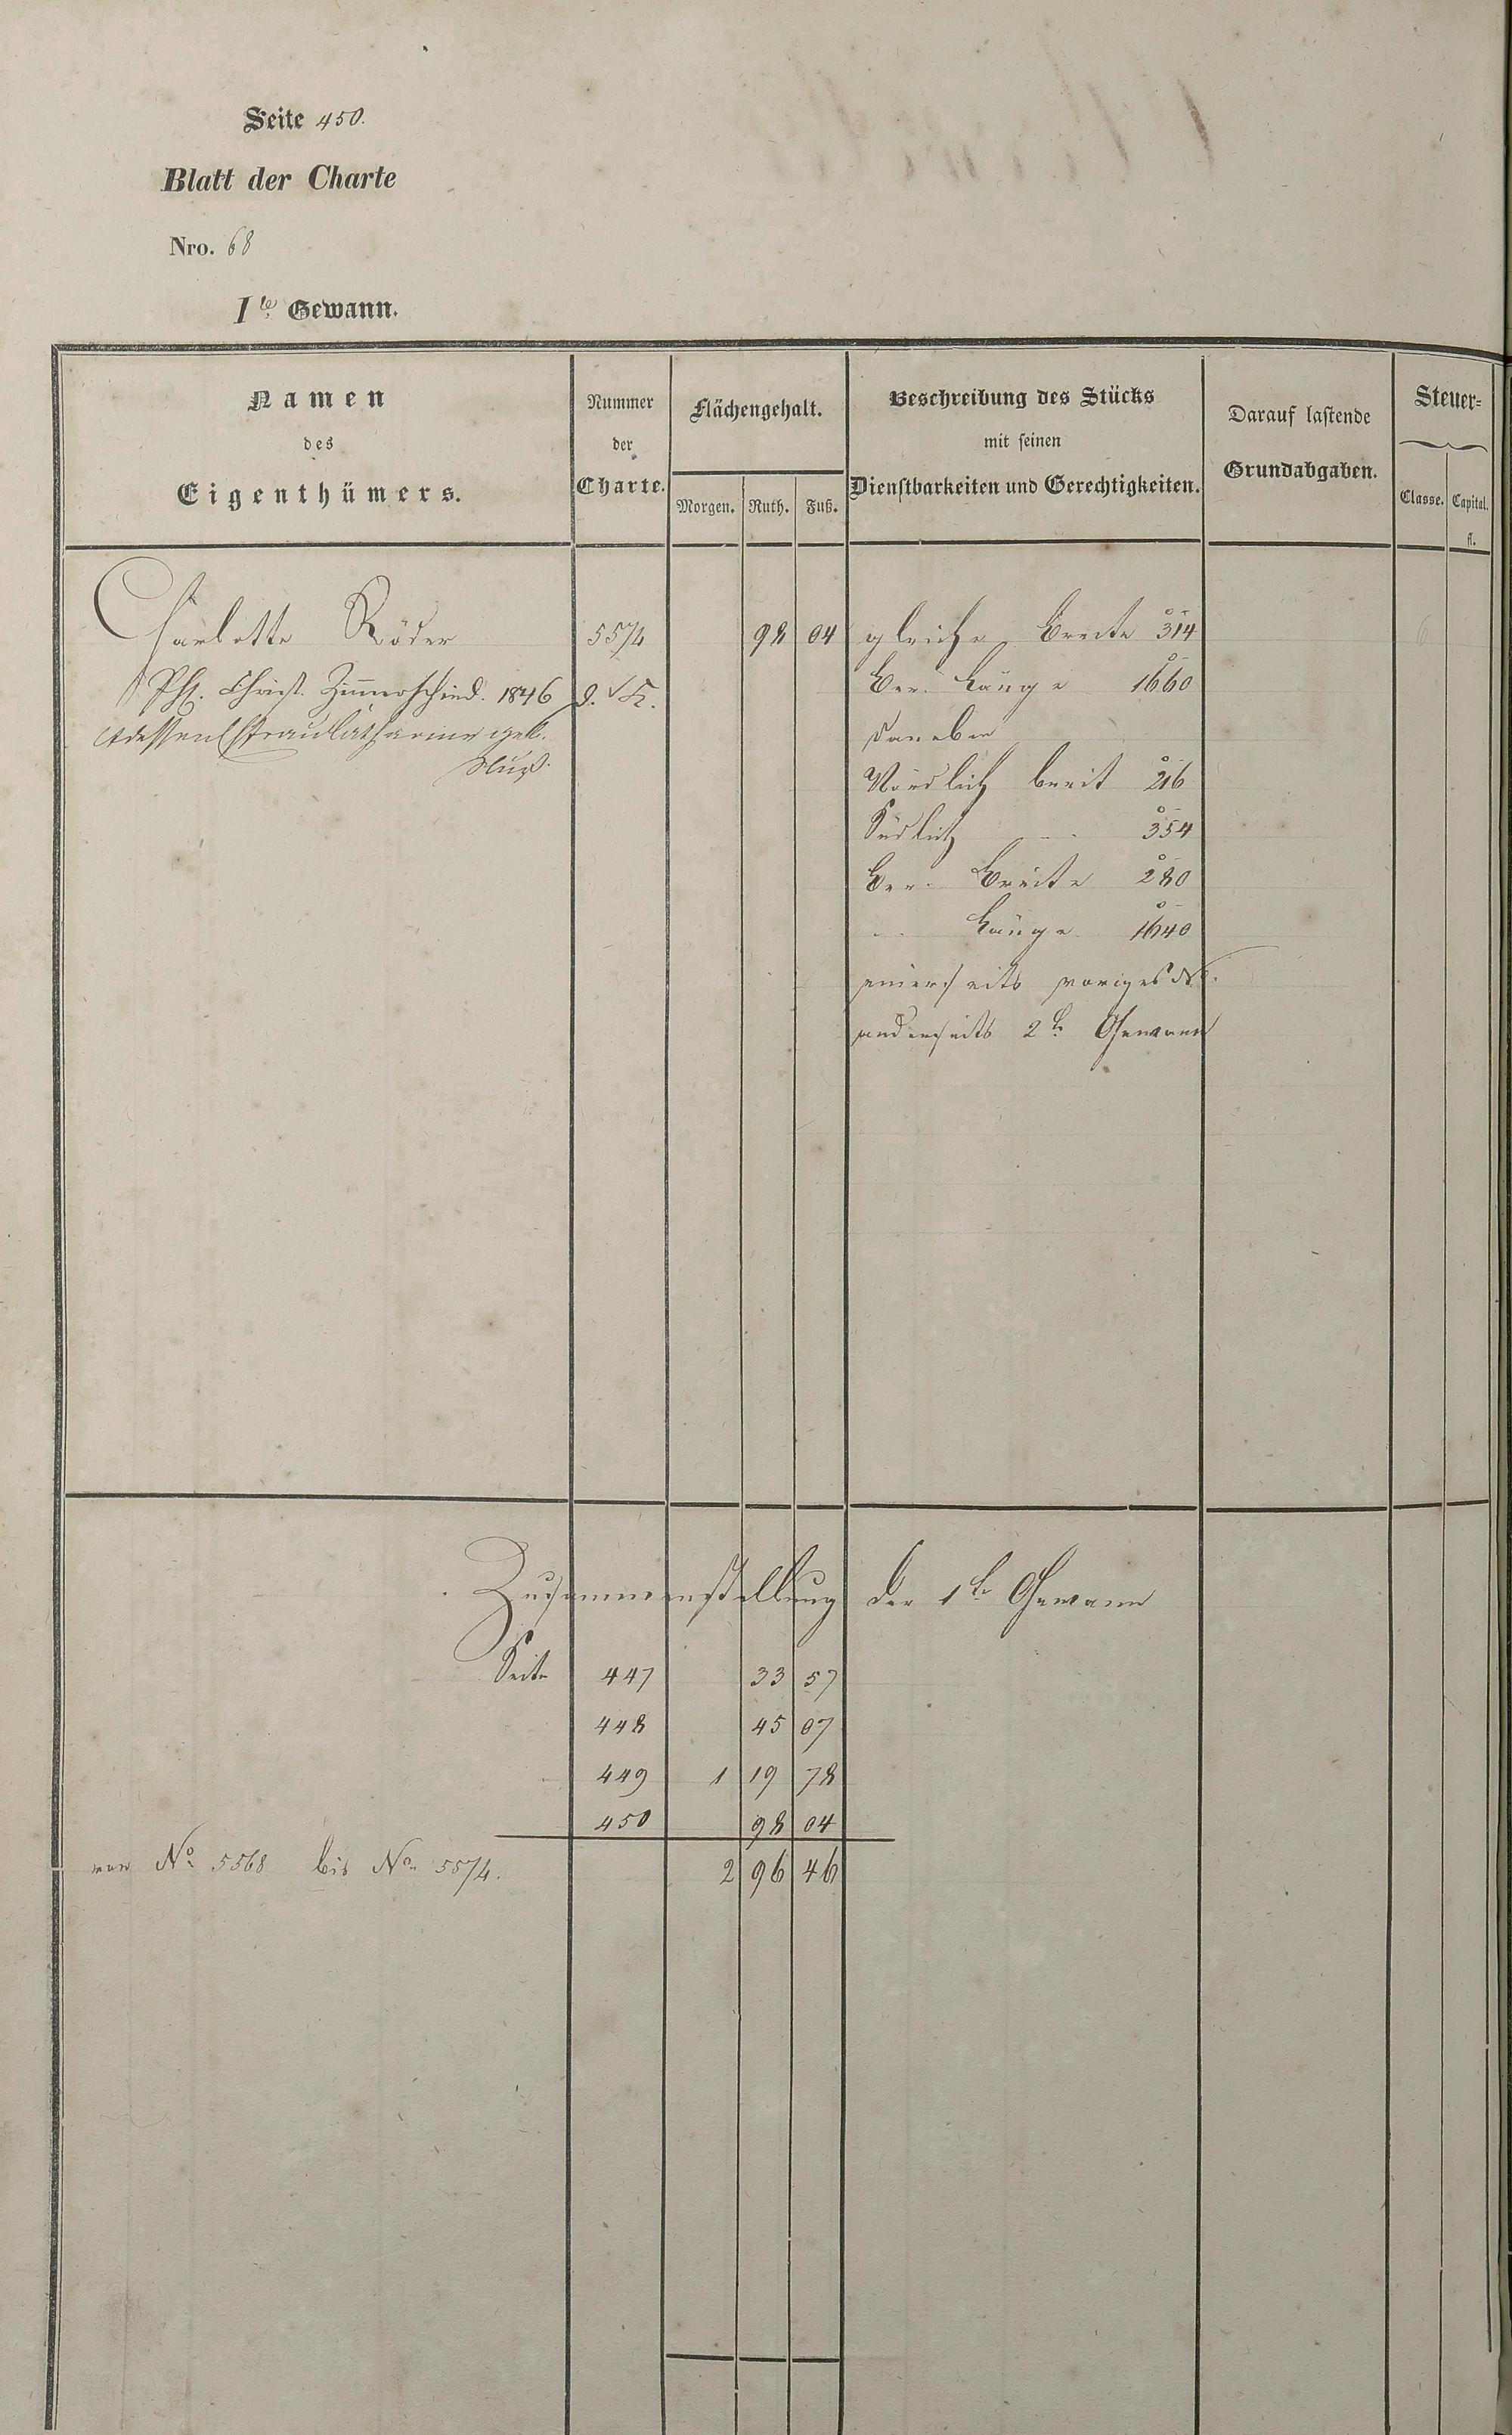 Seite 450.
Blatt der Charte
Nro. 68
Ite Gewann.
Namen des Eigenthümers.
Nummer der Charte.
Flächengehalt.
Morgen. Ruth. Fuß.
Beschreibung des Stücks mit seinen Dienstbarkeiten und Gerechtigkeiten.
Darauf lastende Grundabgaben.
Steuer=
Classe. Capital.
fl.
Charlotte Röder 5574 98 04 gleiche Breite 314
Ph. Christ. Zimerschied. 1846 d. K. Ber. Länge 1660
dessen Ehefrau Catharine geb. daneben
Nördlich breit 216
Südlich - - - 354
Ber. Breite 280
- - Länge 1640
einerseits voriges No.
anderseits 2te Gewann
Zusammenstellung der 1te Gewann
Seite 447 33 57
448 45 07
449 1 19 78
450 98 04
von No. 5568 bis No. 5574. 2 96 46